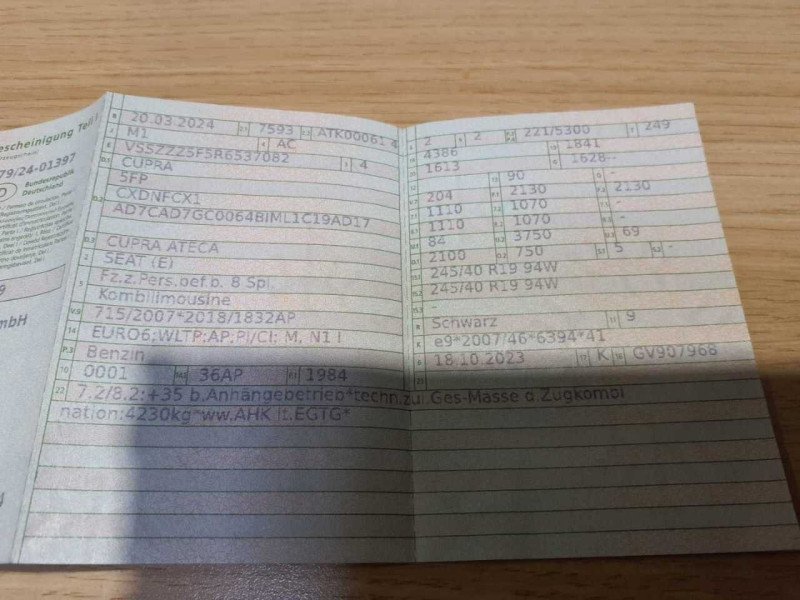 escheinigung Teil I
79/24-01397
Bundesrepublik
Deutschland
9
mbH
B 20.03.2024 2.1 7593 2.2 ATK00061 4
J M1 4 AC
E VSSZZZ5FSR6537082 3 4
D.1 CUPRA
5FP
D.2 CXDNFCX1
AD7CAD7GC0064BIML1C19AD17
D.3 CUPRA ATECA
2 SEAT (E)
5 Fz.z.Pers.bef.b. 8 Spl.
Kombilimousine
V.9 715/2007*2018/1832AP
14 EURO6;WLTP;AP;PI/CI; M, N1 I
P.3 Benzin
10 0001 14.1 36AP P.1 1984
22 7.2/8.2:+35 b.Anhängebetrieb*techn.zul.Ges-Masse d.Zugkombi
nation:4230kg*ww.AHK lt.EGTG*
2 2 221/5300 T 249
18 4386 19 1841
20 1613 G 1628--
90 -
204 2130 2130
1110 1070 -
1110 1070 -
84 3750 69
O.1 2100 O.2 750 S.1 5 S.2 -
15.1 245/40 R19 94W
15.2 245/40 R19 94W
15.3 -
R Schwarz 11 9
K e9*2007/46*6394*41
6 18.10.2023 17 K 16 GV907968
21